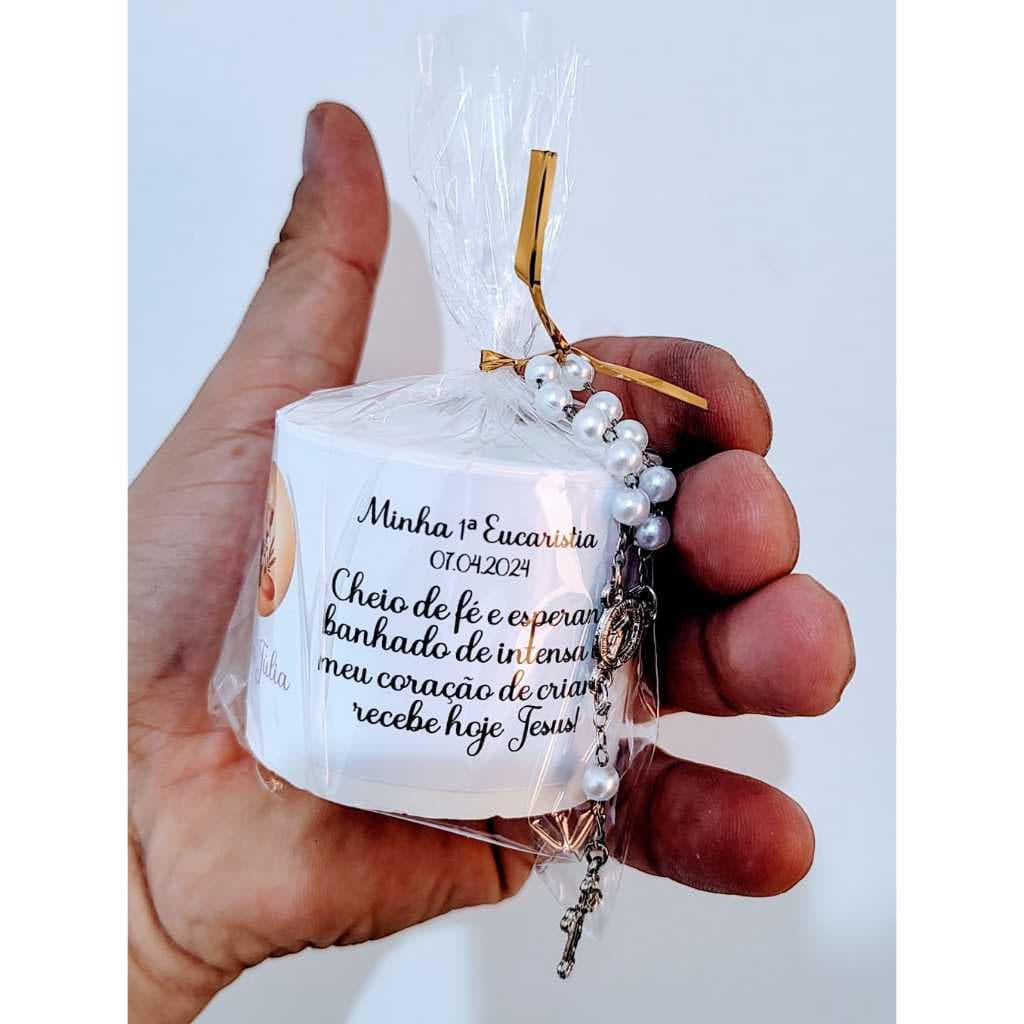 Minha 1ª Eucaristia
07.04.2024
Cheio de fé e esperan
banhado de intensa
meu coração de crian
recebe hoje Jesus!
Júlia